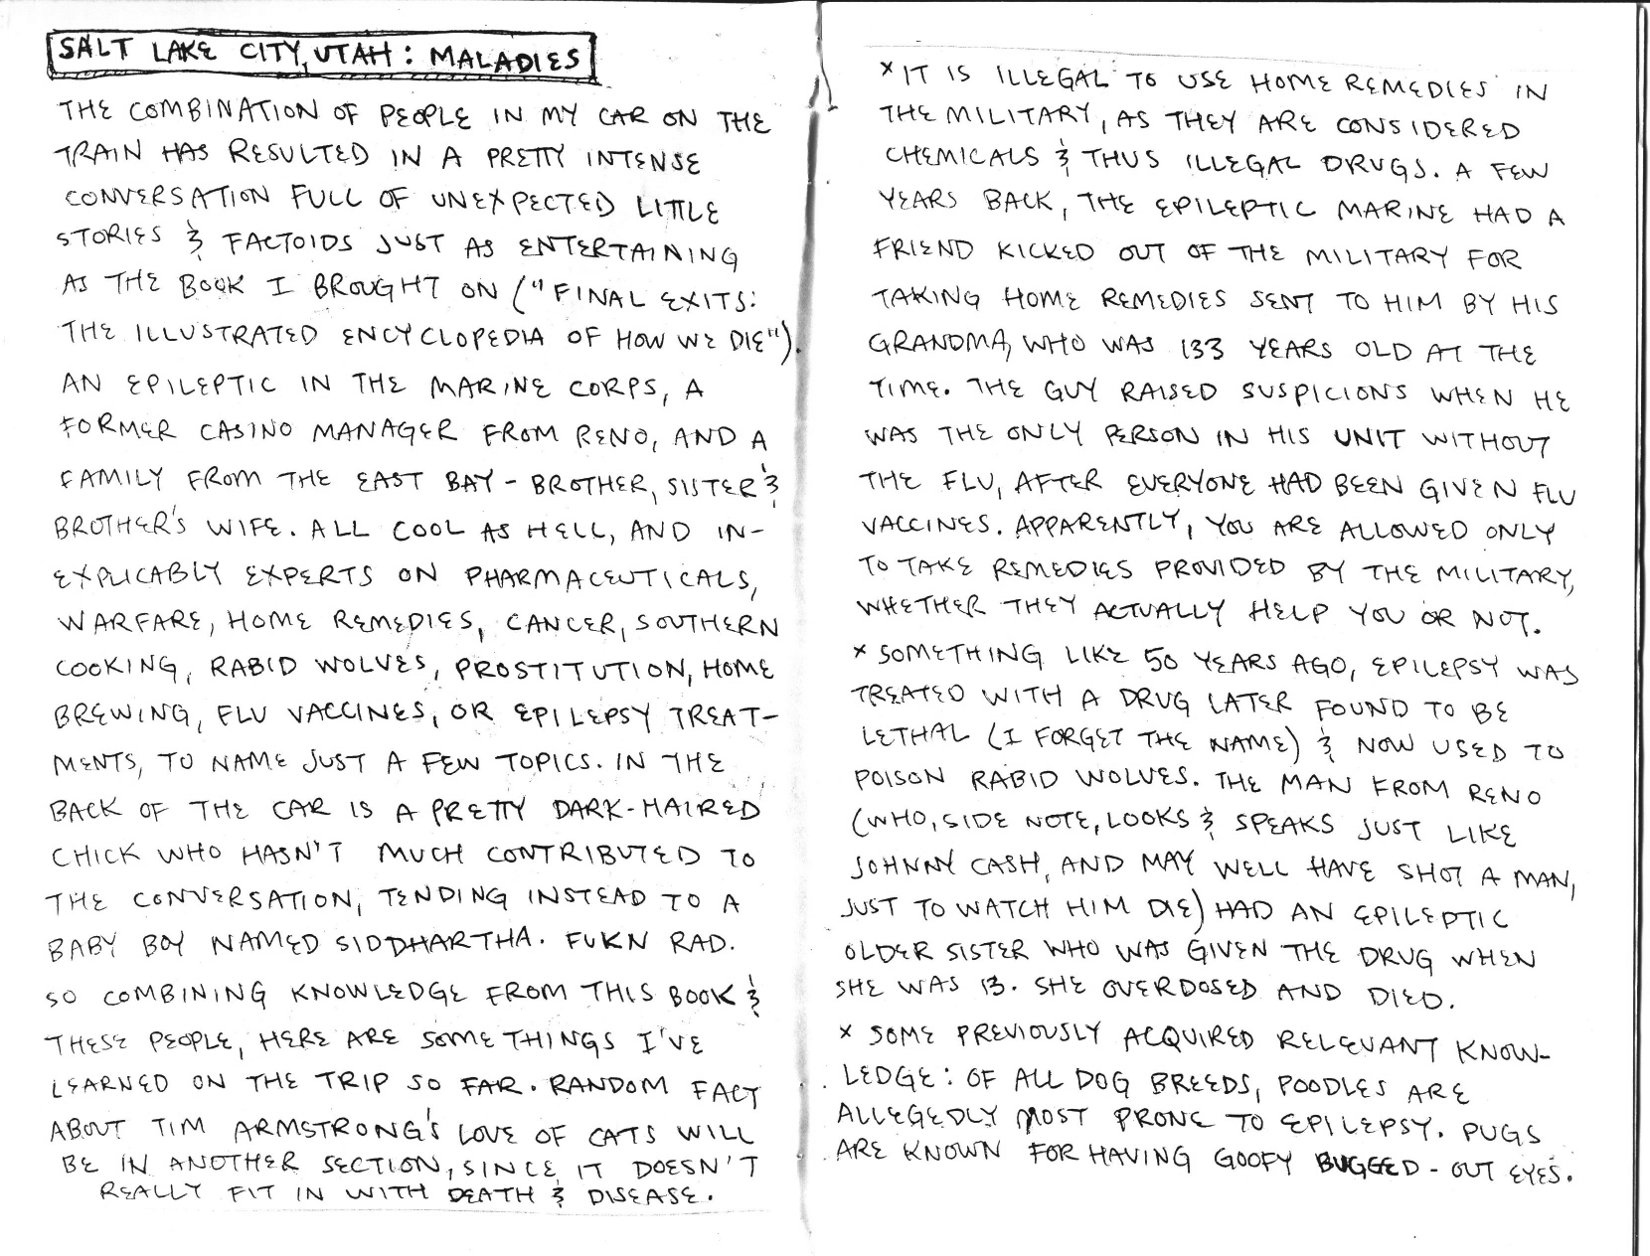 SALT LAKE CITY, UTAH: MALADIES
THE COMBINATION OF PEOPLE IN MY CAR ON THE
TRAIN HAS RESULTED IN A PRETTY INTENSE
CONVERSATION FULL OF UNEXPECTED LITTLE
STORIES & FACTOIDS JUST AS ENTERTAINING
AS THE BOOK I BROUGHT ON ("FINAL EXITS:
THE ILLUSTRATED ENCYCLOPEDIA OF HOW WE DIE").
AN EPILEPTIC IN THE MARINE CORPS, A
FORMER CASINO MANAGER FROM RENO, AND A
FAMILY FROM THE EAST BAY - BROTHER, SISTER &
BROTHER'S WIFE. ALL COOL AS HELL, AND IN-
EXPLICABLY EXPERTS ON PHARMACEUTICALS,
WARFARE, HOME REMEDIES, CANCER, SOUTHERN
COOKING, RABID WOLVES, PROSTITUTION, HOME
BREWING, FLU VACCINES, OR EPILEPSY TREAT-
MENTS, TO NAME JUST A FEW TOPICS. IN THE
BACK OF THE CAR IS A PRETTY DARK-HAIRED
CHICK WHO HASN'T MUCH CONTRIBUTED TO
THE CONVERSATION, TENDING INSTEAD TO A
BABY BOY NAMED SIDDHARTHA. FUKN RAD.
SO COMBINING KNOWLEDGE FROM THIS BOOK &
THESE PEOPLE, HERE ARE SOME THINGS I'VE
LEARNED ON THE TRIP SO FAR. RANDOM FACT
ABOUT TIM ARMSTRONG'S LOVE OF CATS WILL
BE IN ANOTHER SECTION, SINCE IT DOESN'T
REALLY FIT IN WITH DEATH & DISEASE.
* IT IS ILLEGAL TO USE HOME REMEDIES IN
THE MILITARY, AS THEY ARE CONSIDERED
CHEMICALS & THUS ILLEGAL DRUGS. A FEW
YEARS BACK, THE EPILEPTIC MARINE HAD A
FRIEND KICKED OUT OF THE MILITARY FOR
TAKING HOME REMEDIES SENT TO HIM BY HIS
GRANDMA, WHO WAS 133 YEARS OLD AT THE
TIME. THE GUY RAISED SUSPICIONS WHEN HE
WAS THE ONLY PERSON IN HIS UNIT WITHOUT
THE FLU, AFTER EVERYONE HAD BEEN GIVEN FLU
VACCINES. APPARENTLY, YOU ARE ALLOWED ONLY
TO TAKE REMEDIES PROVIDED BY THE MILITARY,
WHETHER THEY ACTUALLY HELP YOU OR NOT.
* SOMETHING LIKE 50 YEARS AGO, EPILEPSY WAS
TREATED WITH A DRUG LATER FOUND TO BE
LETHAL (I FORGET THE NAME) & NOW USED TO
POISON RABID WOLVES. THE MAN FROM RENO
(WHO, SIDE NOTE, LOOKS & SPEAKS JUST LIKE
JOHNNY CASH, AND MAY WELL HAVE SHOT A MAN,
JUST TO WATCH HIM DIE) HAD AN EPILEPTIC
OLDER SISTER WHO WAS GIVEN THE DRUG WHEN
SHE WAS 13. SHE OVERDOSED AND DIED.
* SOME PREVIOUSLY ACQUIRED RELEVANT KNOW-
LEDGE: OF ALL DOG BREEDS, POODLES ARE
ALLEGEDLY MOST PRONE TO EPILEPSY. PUGS
ARE KNOWN FOR HAVING GOOFY BUGGED-OUT EYES.